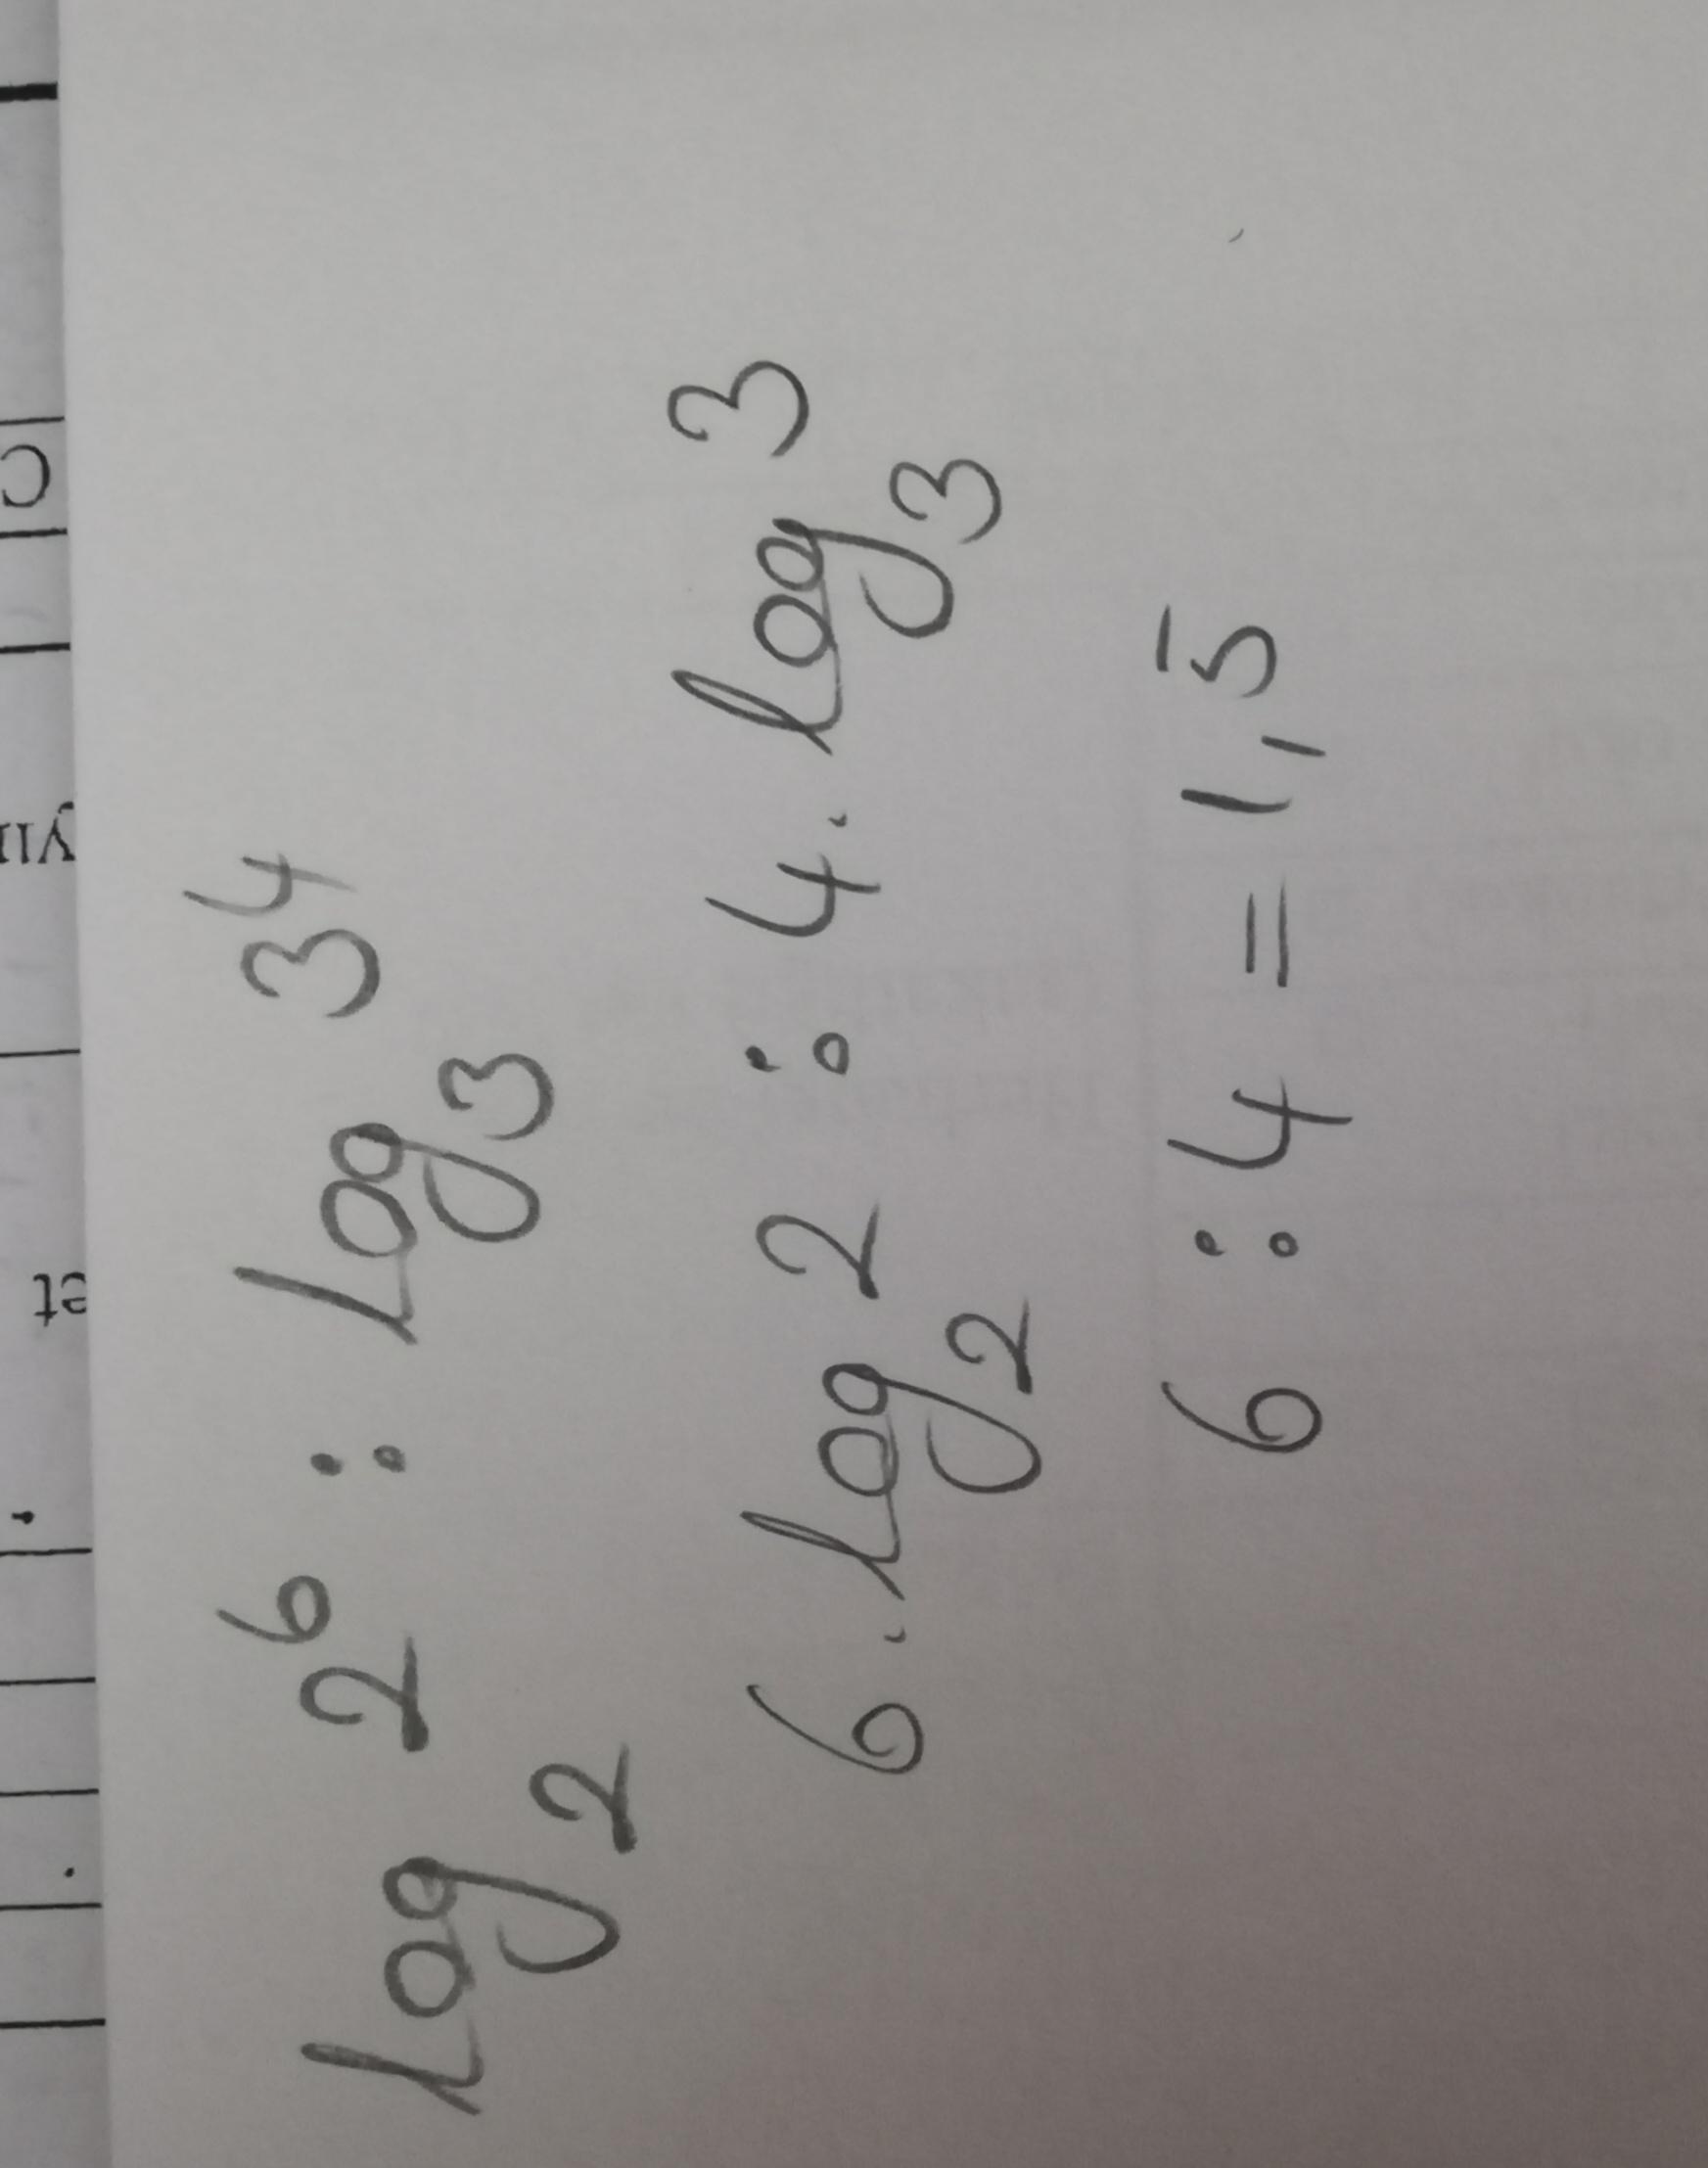 log₂ 2⁶ : log₃ 3⁴
6 · log₂ 2 : 4 · log₃ 3
6 : 4 = 1,5